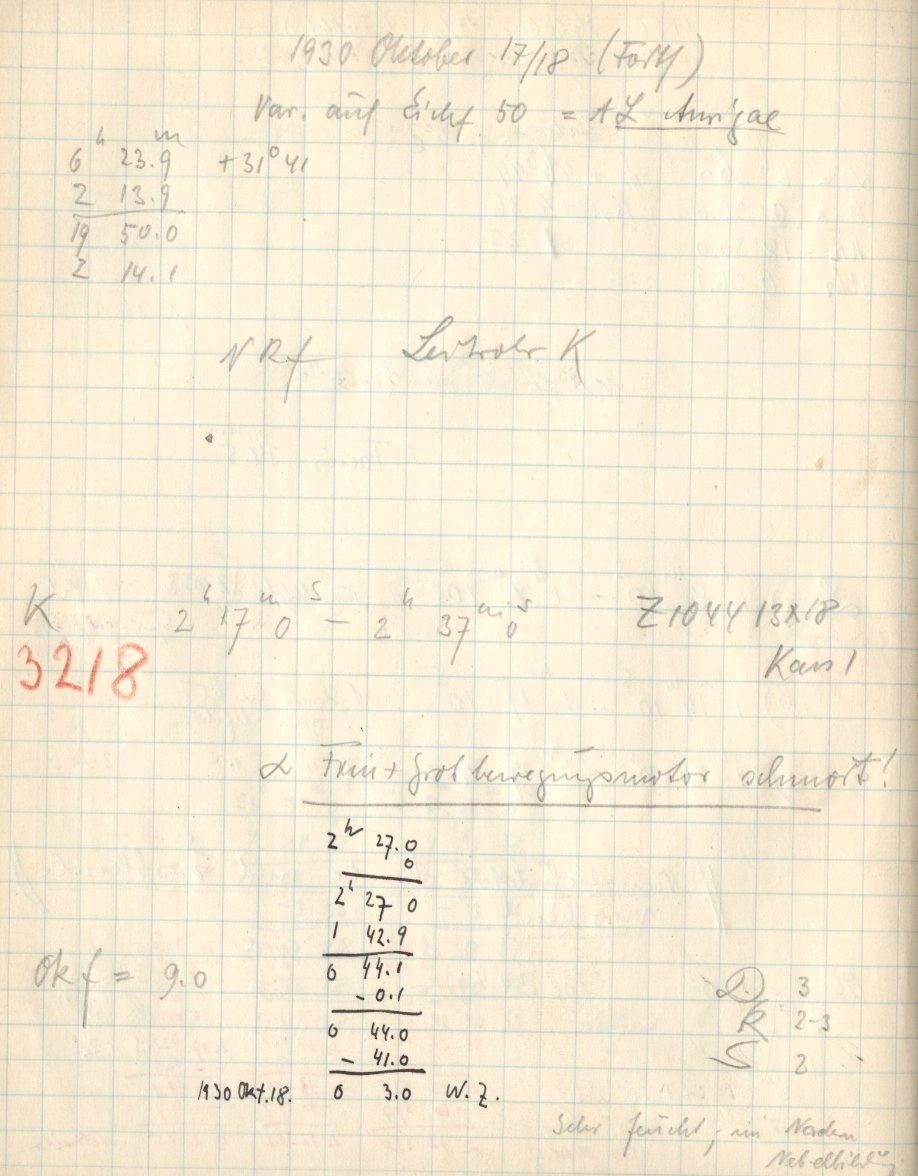 1930 Oktober 17/18 (Forts)
Var. auf Eichf 50 = AZ Aurigae
6h 23.9m +31° 41
2 13.9
19 50.0
2 14.1
NRf Leitrohr K
K 2h 17m 0s - 2h 37m 0s Z1044 13x18
3218
Kass 1
α Fein + Grobbewegungsmotor schmort!
2h 27.0
0
2h 27 0
1 42.9
0 44.1
- 0.1
0 44.0
- 41.0
1930 Okt. 18. 0 3.0 W.Z.
Okf = 9.0
D 3
R 2-3
S 2
Sehr feucht, im Norden
Nebelbildg